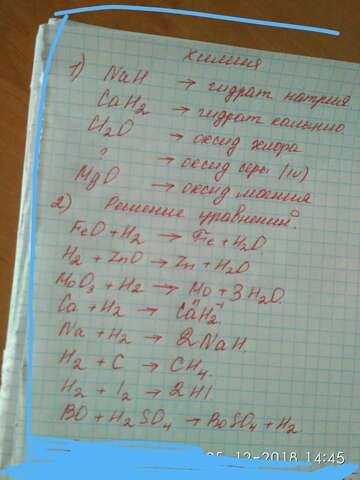 Химия
1) NaH → гидрат натрия
CaH2 → гидрат кальцию
Cl2O → оксид хлора
? → оксид серы (IV)
MgO → оксид магния
2) Решение уравнений.
FeO + H2 → Fe + H2O
H2 + ZnO → Zn + H2O
MoO3 + H2 → Mo + 3H2O
Ca + H2 → CaH2
Na + H2 → 2NaH
H2 + C → CH4
H2 + I2 → 2HI
BO + H2SO4 → BoSO4 + H2
05-12-2018 14:45